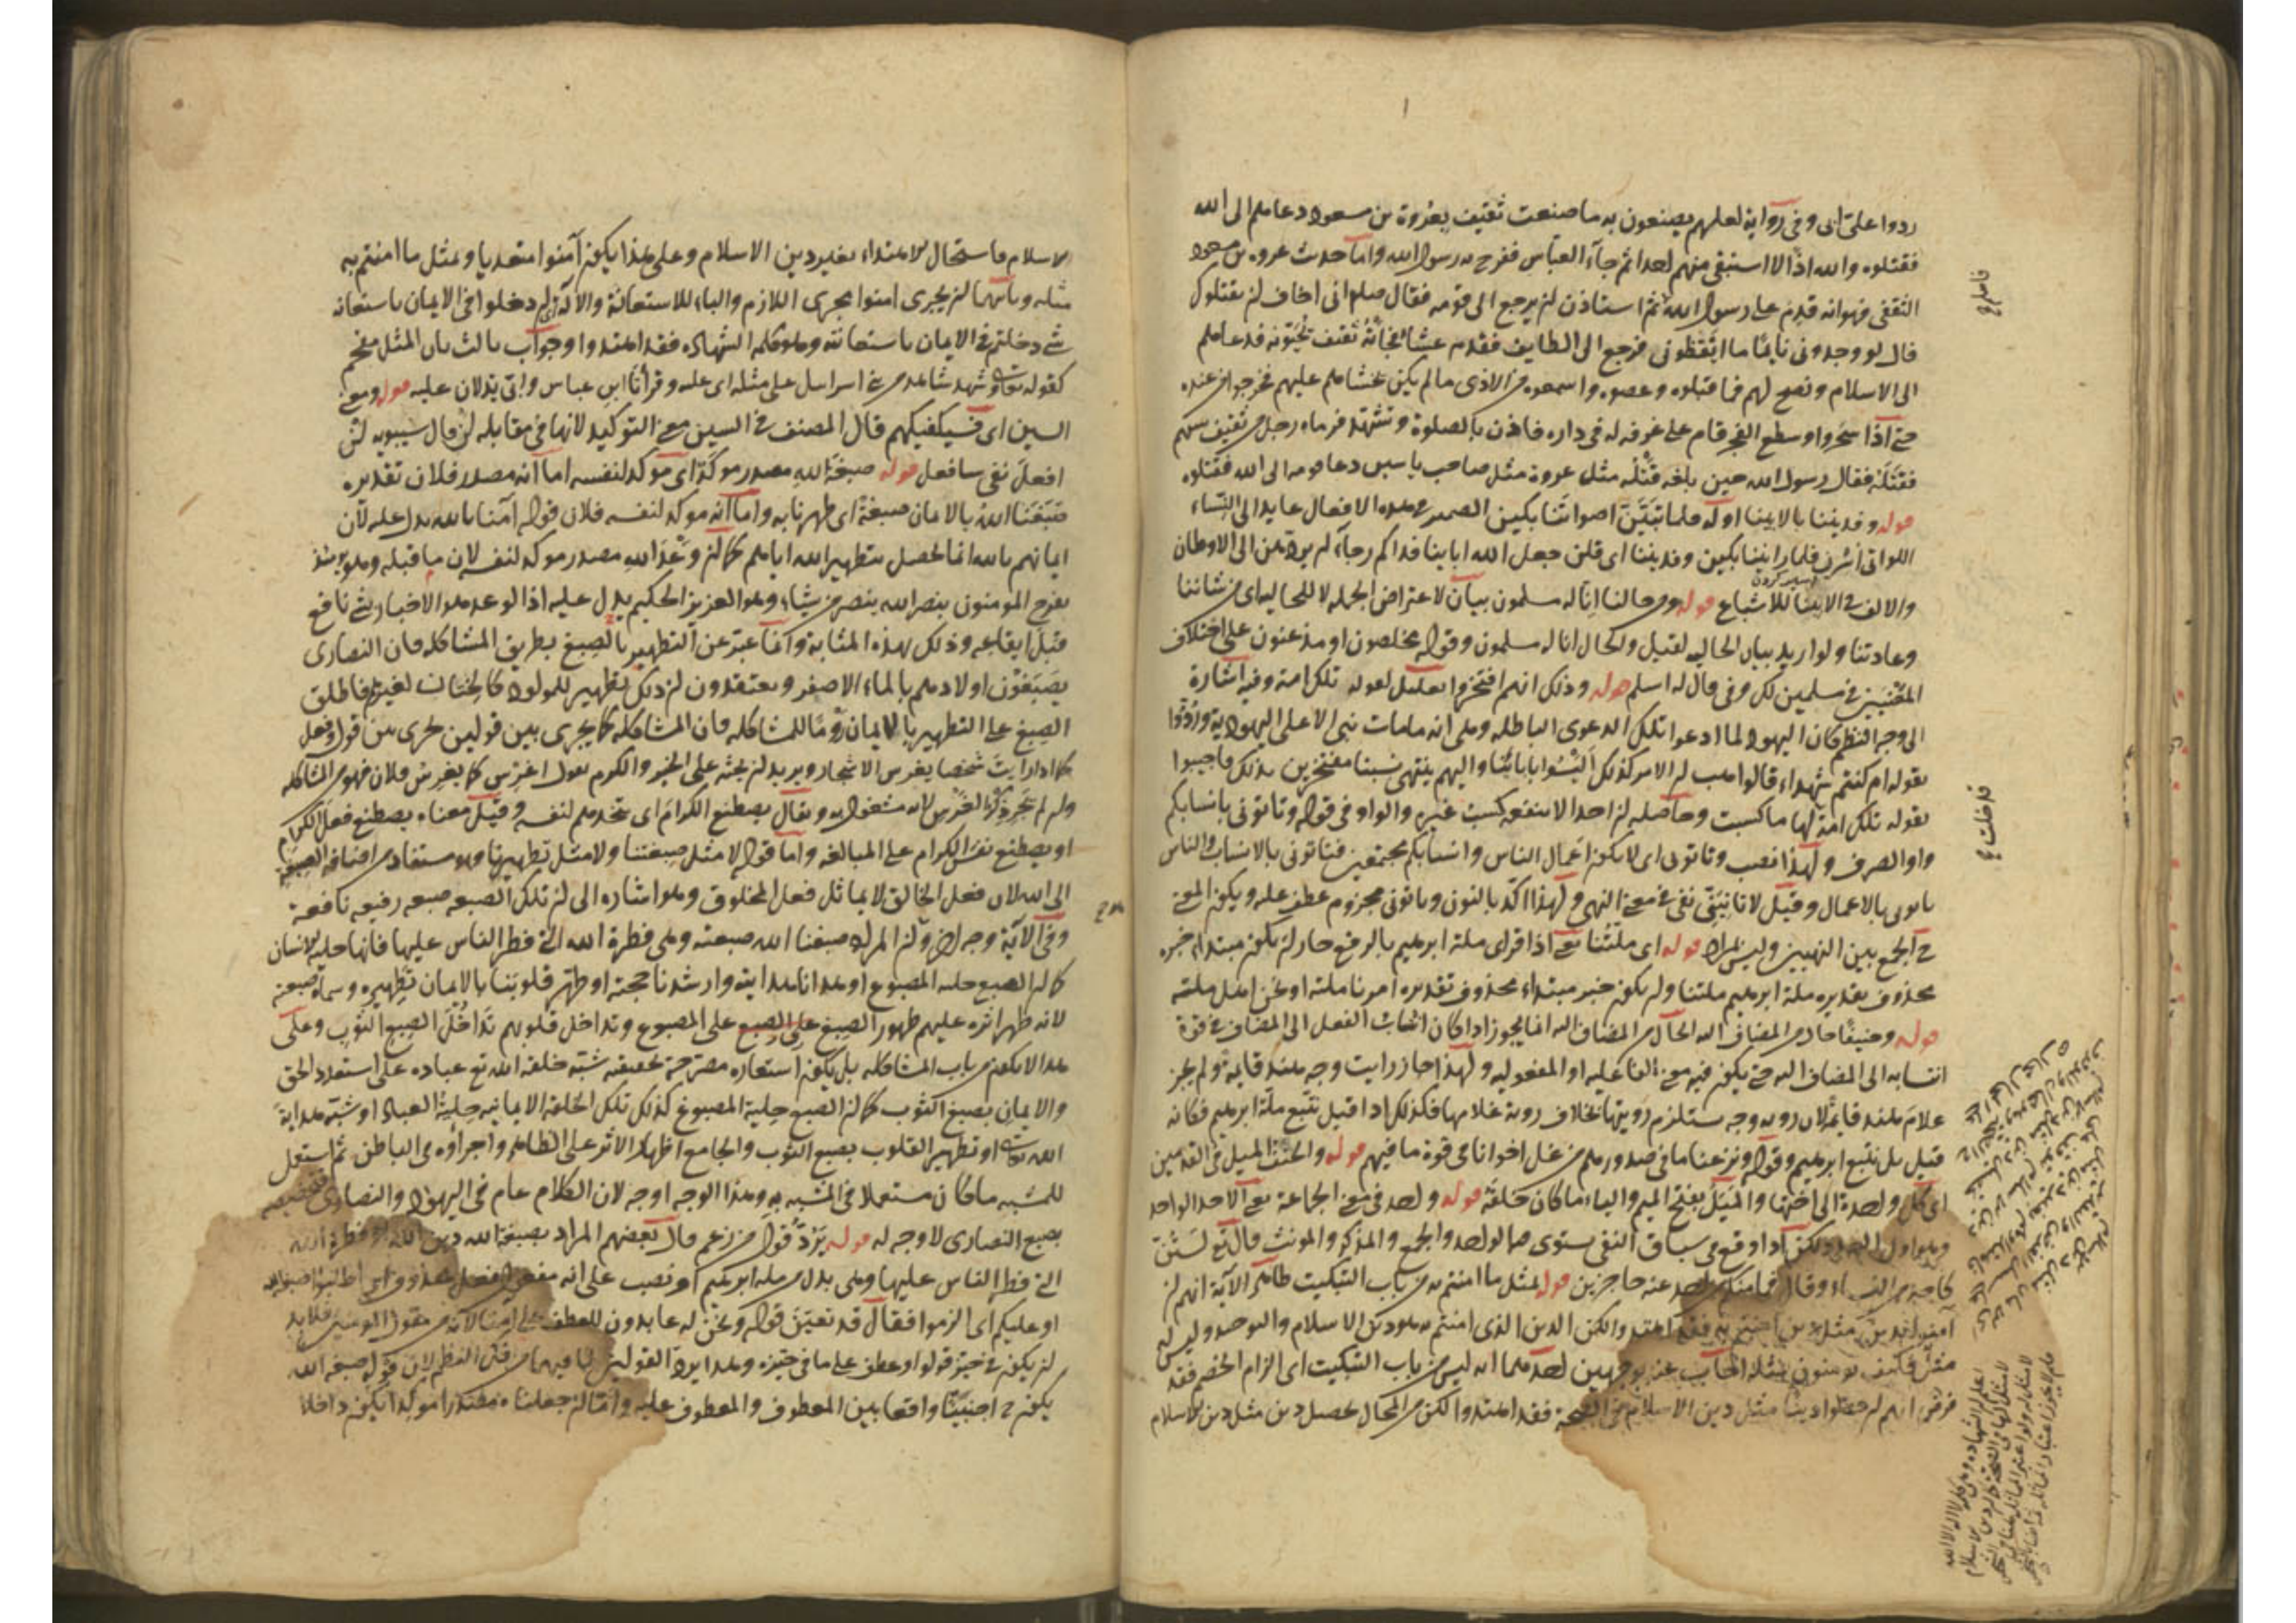 ردوا على ابى وفى رواية لعلهم يصنعون به ما صنعت ثقيف بعروة بن مسعود دعاهم الى الله
فقتلوه والله اذًا لا استبقى منهم احدا ثم جاء العباس ففرح به رسول الله واما حدث عروه بن مسعود
الثقفى فهو انه قدم على رسول الله ثم استاذن لن يرجع الى قومه فقال صلى انى اخاف لن يقتلوك
قال لو وجدونى نايمًا ما ايقظونى فرجع الى الطايف فقدم عشاءً فجاءته ثقيف يحيونه فدعاهم
الى الاسلام ونصح لهم فما قبلوه وعصوه واسمعوه من الاذى ما لم يكن يخشاهم عليهم فخرجوا من عنده
حتى اذا سحروا وسطع الفجر قام على غرفه له فى داره فاذن بالصلوة وتشهد فرماه رجل من ثقيف بسهم
فقتله فقال رسول الله حين بلغه قتله مثل عروة مثل صاحب ياسين دعا قومه الى الله فقتلوه
قوله وفديننا بالابينا اوله فلما تبين اصواتنا بكين الضمير فى هذه الافعال عايد الى النساء
اللواتى اسرن فلما راينننا بكين وفديننا اى قلن جعل الله اباءنا فداكم رجاء لم يردهن الى الاوطان
والالف فى الابينا للاشباع قوله ومن حالنا انا له مسلمون بيان لاعتراض الجمله لا للحاليه اى من شاننا
وعادتنا ولو اريد بيان الحاليه لقيل والحال انا له مسلمون وقوله مخلصون او مذعنون على اختلاف
المعنيين فى مسلمين لك وفى قال له اسلم قوله وذلك انهم افتخروا تعليل لقوله تلك امة وفيه اشارة
الى وجه النظم كان اليهود لما ادعوا تلك الدعوى الباطله وهى انه ما مات نبى الا على اليهودية وردوا
بقوله ام كنتم شهداء قالوا هب لن الامر كذلك اليسوا بابائنا واليهم ينتهى نسبنا مفتخرين بذلك فاجيبوا
بقوله تلك امة لها ما كسبت وحاصله لن احدا لا ينفعه كسب غيره والواو فى قوله وتاتونى بانسابكم
واو الصرف ولهذا نصب وتاتونى اى لا يكون اعمال الناس وانسابكم مجتمعين فتاتونى بالانساب والناس
ياتونى بالاعمال وقيل لا تاتينى نفى فى معنى النهى ولهذا اكد بالنون وتاتونى مجزوم عطف عليه ويكون المعنى
فى الجمع بين النهيين وليس المراد قوله اى ملتنا يعنى اذا قرى ملة ابرهيم بالرفع جاز لن يكون مبتداء خبره
محذوف تقديره ملة ابرهيم ملتنا ولن يكون خبر مبتداء محذوف تقديره امرنا ملته او نحن اهل ملته
قوله وحنيفًا حال من المضاف اليه الحال من المضاف اليه انما يجوز اذا كان انتساب الفعل الى المضاف فى قوة
انتسابه الى المضاف اليه حتى يكون فيه معنى الفاعليه او المفعوليه ولهذا جاز رايت وجه هند قايمة ولم يجز
غلام هند قايمةً لان رويه وجه يستلزم رويتها بخلاف روية غلامها فكذلك اذا قيل نتبع ملة ابرهيم فكانه
قيل بل نتبع ابرهيم وقوله ونزعنا ما فى صدورهم من غل اخوانا فى قوة ما فيهم قوله والحنف الميل فى القدمين
اى كل واحدة الى اختها والميل بفتح الميم والياء ما كان خلقة قوله واحد فى معنى الجماعة يعنى الاحد الواحد
وهو اول العدد ولكن اذا وقع فى سياق النفى يستوى فيه الواحد والجمع والمذكر والمونث قال تع لستن
كاحد من النساء وقال فما منكم من احد عنه حاجزين قوله بمثل ما امنتم به من باب التبكيت ظاهر الآية انهم لن
آمنوا بدين مثل دين امنتم به فقد اهتدوا لكن الدين الذى امنتم به هو دين الاسلام والتوحيد وليس له
مثل فكيف يومنون بمثله اجاب عنه بوجهين احدهما انه ليس من باب التبكيت اى الزام الخصم فقد
فرض انهم لن حصلوا دينا مثل دين الاسلام فى الصحة فقد اهتدوا لكن من المحال تحصل دين مثل دين الاسلام
الاسلام فاستحال الاهتداء بغير دين الاسلام وعلى هذا يكون آمنوا متعديا وبمثل ما امنتم به
مثله وثانيهما لن يجرى امنوا مجرى اللازم والباء للاستعانة والالة اى لن دخلوا فى الايمان باستعانة
شى دخلتم فى الايمان باستعانته وهو كلمه الشهادة فقد اهتدوا وجواب ثالث بان المثل مقحم
كقوله تعالى وشهد شاهد من بنى اسرايل على مثله اى عليه وقرأتا ابن عباس وابى يدلان عليه قوله ومعنى
السين اى فسيكفيكهم قال المصنف فى السين معنى التوكيد لانها فى مقابله لن قال سيبويه لن
افعل نفى سافعل قوله صبغة الله مصدر موكد اى موكد لنفسه اما انه مصدر فلان تقديره
صبغنا الله بالايمان صبغة اى طهرنا به واما انه موكد لنفسه فلان قوله آمنا بالله يدل عليه لان
ايمانهم بالله انما يحصل بتطهير الله اياهم كما لن وعد الله مصدر موكد لنفسه لان ما قبله وهو يومئذ
يفرح المومنون بنصر الله ينصر من يشاء وهو العزيز الحكيم يدل عليه اذ الوعد هو الاخبار بشى نافع
قبل ايقاعه وذلك بهذه المثابة وانما عبر عن التطهير بالصبغ بطريق المشاكله فان النصارى
يصبغون اولادهم بالماء الاصفر ويعتقدون لن ذلك تطهير للمولود كالختان لغيرهم فاطلق
الصبغ على التطهير بالايمان رومًا للمشاكله فان المشاكلة كما يجرى بين قولين يجرى بين قول وفعل
كما اذا رايت شخصا يغرس الاشجار ويريد لن يحثه على الخير والكرم يقول اغرس كما يغرس فلان فهو من المشاكله
ولن لم يجر ذكر الغرس لانه مشغول به ويقال يصطنع الكرام اى يتخدهم لنفسه وقيل معناه يصطنع فعل الكرام
او يصطنع نفس الكرام على المبالغه واما قوله لا مثل صبغتنا ولا مثل تطهيرنا وهو مستفاد من اضافه الصبغة
الى الله لان فعل الخالق لا يماثل فعل المخلوق وهو اشاره الى لن تلك الصبغه صبغه رفيعه نافعة
وفى الآية وجه اخر ولن المراد صبغنا الله صبغته وهى فطرة الله التى فطر الناس عليها فانها حلية الانسان
كما لن الصبغ حليه المصبوغ او هدانا هدايته وارشدنا حجته او طهر قلوبنا بالايمان تطهيره وسماه صبغة
لانه ظهر اثره عليهم ظهور الصبغ على المصبوغ وتداخل قلوبهم تداخل الصبغ الثوب وعلى
هذا لا يكون من باب المشاكله بل يكون استعاره مصرحة تحقيقيه شبه خلقة الله تع عباده على استعداد الحق
والايمان بصبغ الثوب كما لن الصبغ حلية المصبوغ كذلك تلك الخلقة الايمانيه حلية العباد او شبه هداية
الله تعالى او تطهير القلوب بصبغ الثوب والجامع اظهار الاثر على الظاهر واجراؤه فى الباطن ثم استعمل
للمشبه ما كان مستعملا فى المشبه به وهذا الوجه اوجه لان الكلام عام فى اليهود والنصارى فتخصيصه
بصبغ النصارى لا وجه له قوله يرد قول من زعم قال بعضهم المراد بصبغة الله دين الله او فطرة الله
التى فطر الناس عليها وهى بدل من ملة ابرهيم او نصب على انه مفعول لفعل محذوف اى اطلبوا صبغة الله
او عليكم اى الزموا فقال قد تعين قوله ونحن له عابدون للعطف على امنا لانه من مقول المومنين فلا بد
لن يكون فى حيز قولوا وعطف على ما فى حيزه وهذا يرد القولين لما فيهما من فك النظم لان قوله صبغة الله
يكون ح اجنبيًا واقعا بين المعطوف والمعطوف عليه واما لن جعلناه مصدرا موكدا يكون داخلا